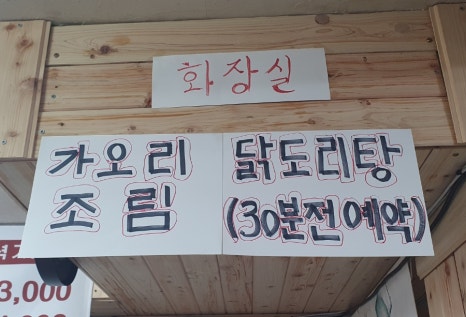 화장실
가오리
조림
닭도리탕
(30분전예약)
3,000